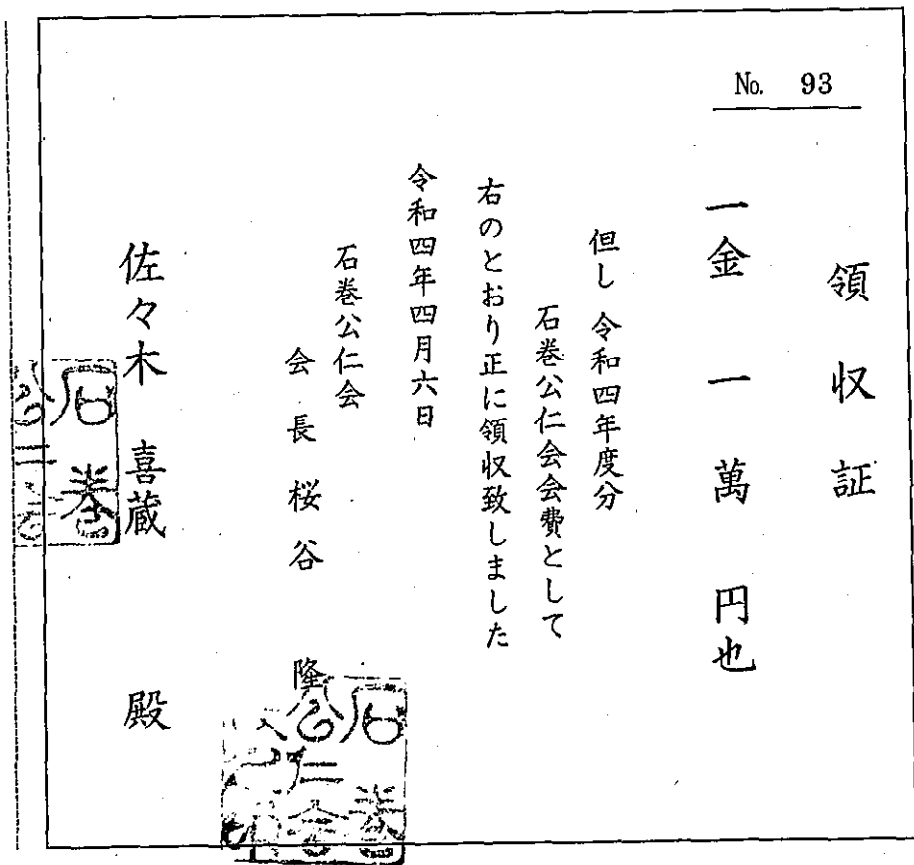 No. 93
領収証
一金 一萬 円也
但し 令和四年度分
石巻公仁会会費として
右のとおり正に領収致しました
令和四年四月六日
石巻公仁会
会長 桜谷 隆
佐々木 喜蔵 殿
石巻
公仁会
石巻
公仁会